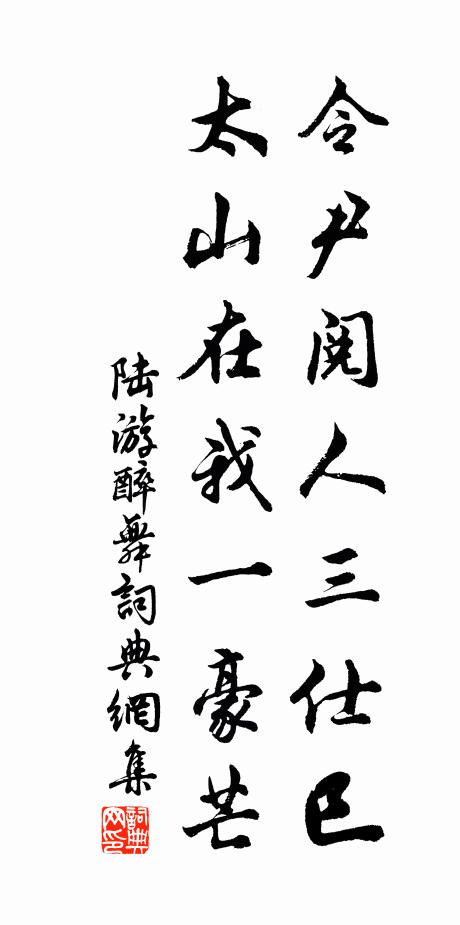 令尹閱人三仕已
太山在我一豪芒
陆游醉舞詞典網集
詞典网印